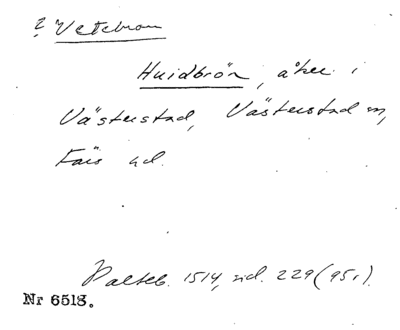 ? Vetebron
Huidbrön, åker i
Västerstad, Västerstad sn,
Färs hd.
Palteb. 1514, sid. 229 (95r).
Nr 6518.